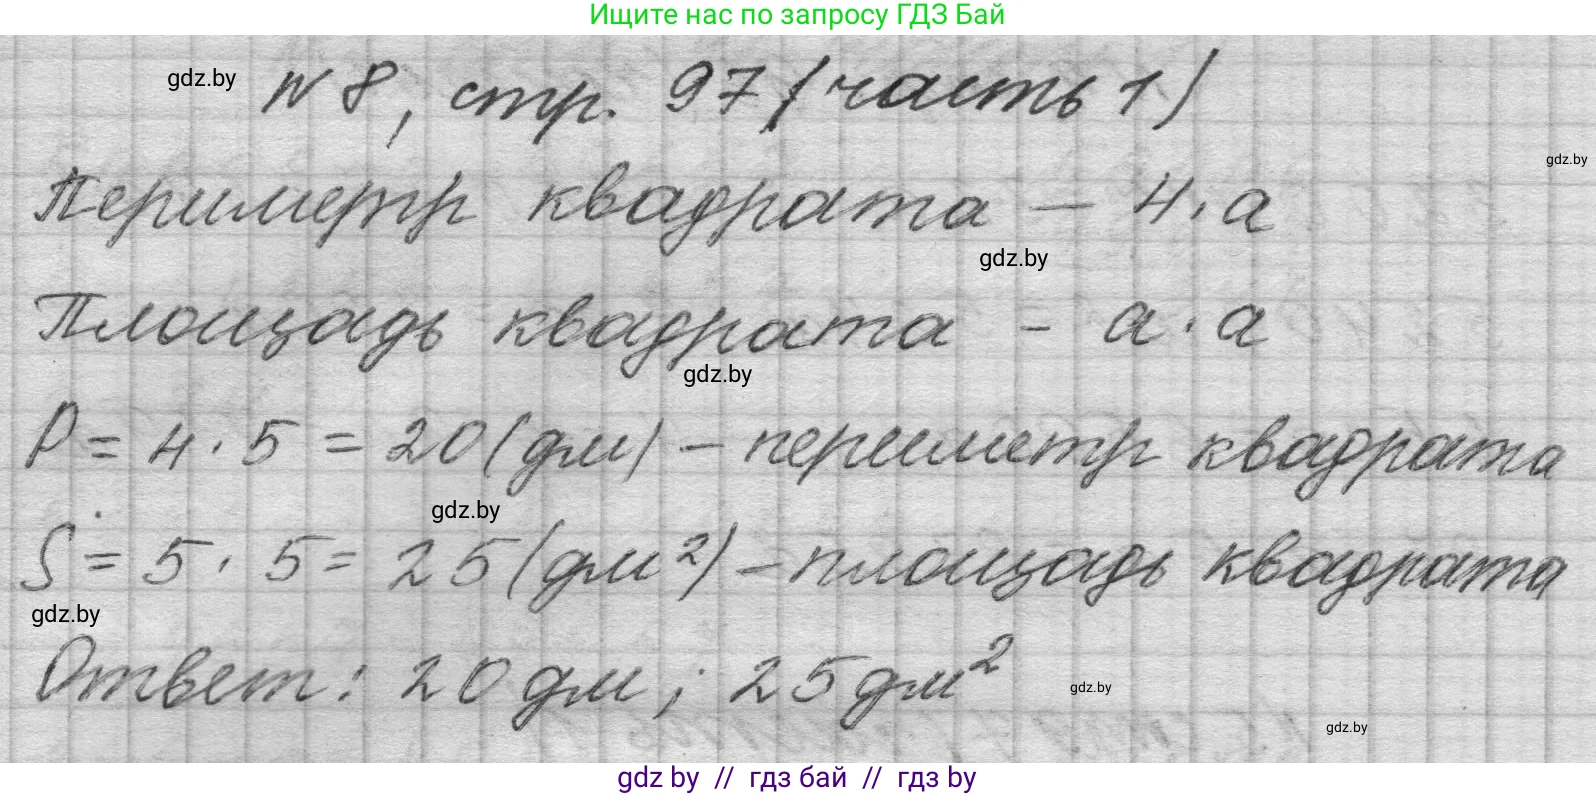 Ищите нас по запросу ГДЗ Бай
gdz.by
N 8, стр. 97 (часть 1)
gdz.by
Периметр квадрата — 4 · a
gdz.by
Площадь квадрата - a · a
gdz.by
P = 4 · 5 = 20 (дм) – периметр квадрата
gdz.by
S = 5 · 5 = 25 (дм²) – площадь квадрата
gdz.by
Ответ: 20 дм ; 25 дм²
gdz.by
gdz.by
gdz by // гдз бай // гдз by